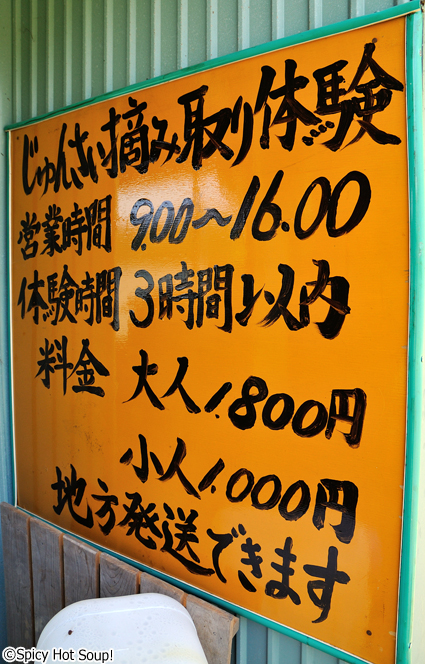 じゅんさい摘み取り体験
営業時間 9.00〜16.00
体験時間 3時間以内
料金 大人 1.800円
小人 1.000円
地方発送できます
©Spicy Hot Soup!